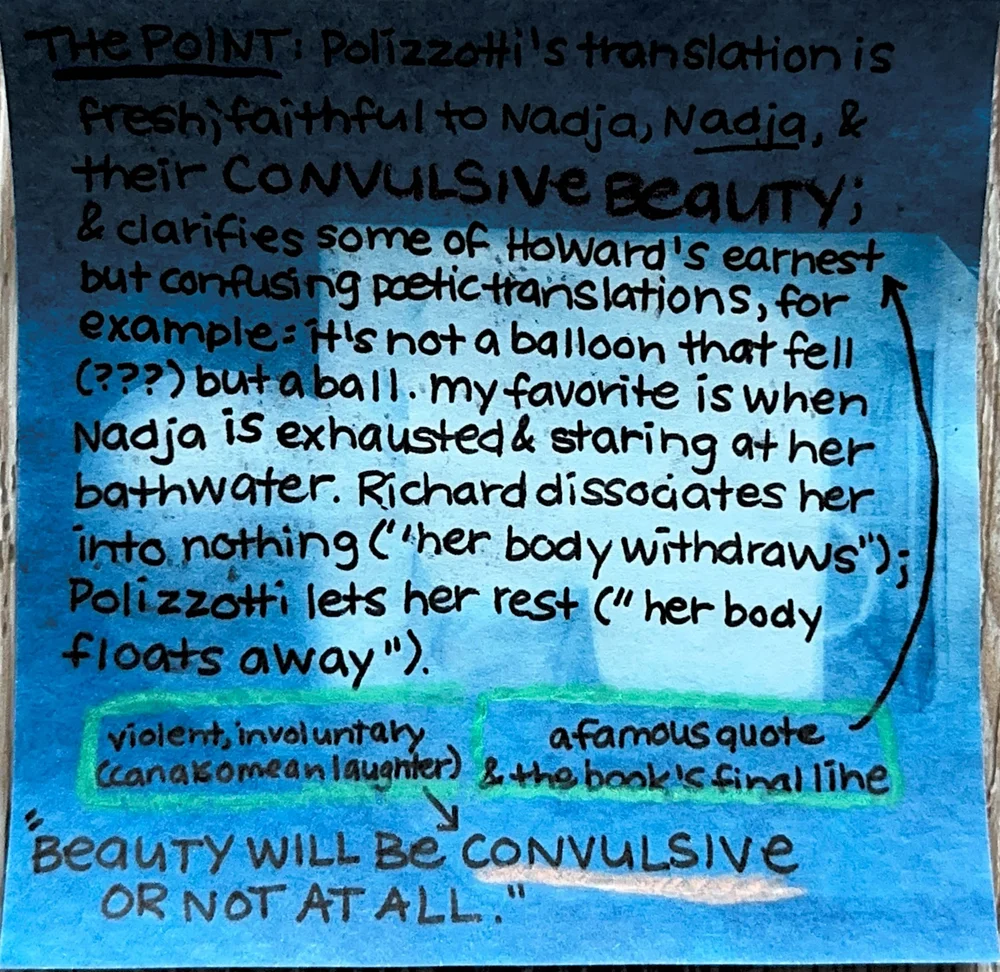 THE POINT: Polizzotti's translation is
fresh; faithful to Nadja, Nadja, &
their CONVULSIVE BEAUTY;
& clarifies some of Howard's earnest
but confusing poetic translations, for
example: it's not a balloon that fell
(???) but a ball. my favorite is when
Nadja is exhausted & staring at her
bathwater. Richard dissociates her
into nothing ("her body withdraws");
Polizzotti lets her rest ("her body
floats away").
violent, involuntary
(can also mean laughter)
a famous quote
& the book's final line
"BEAUTY WILL BE CONVULSIVE
OR NOT AT ALL."